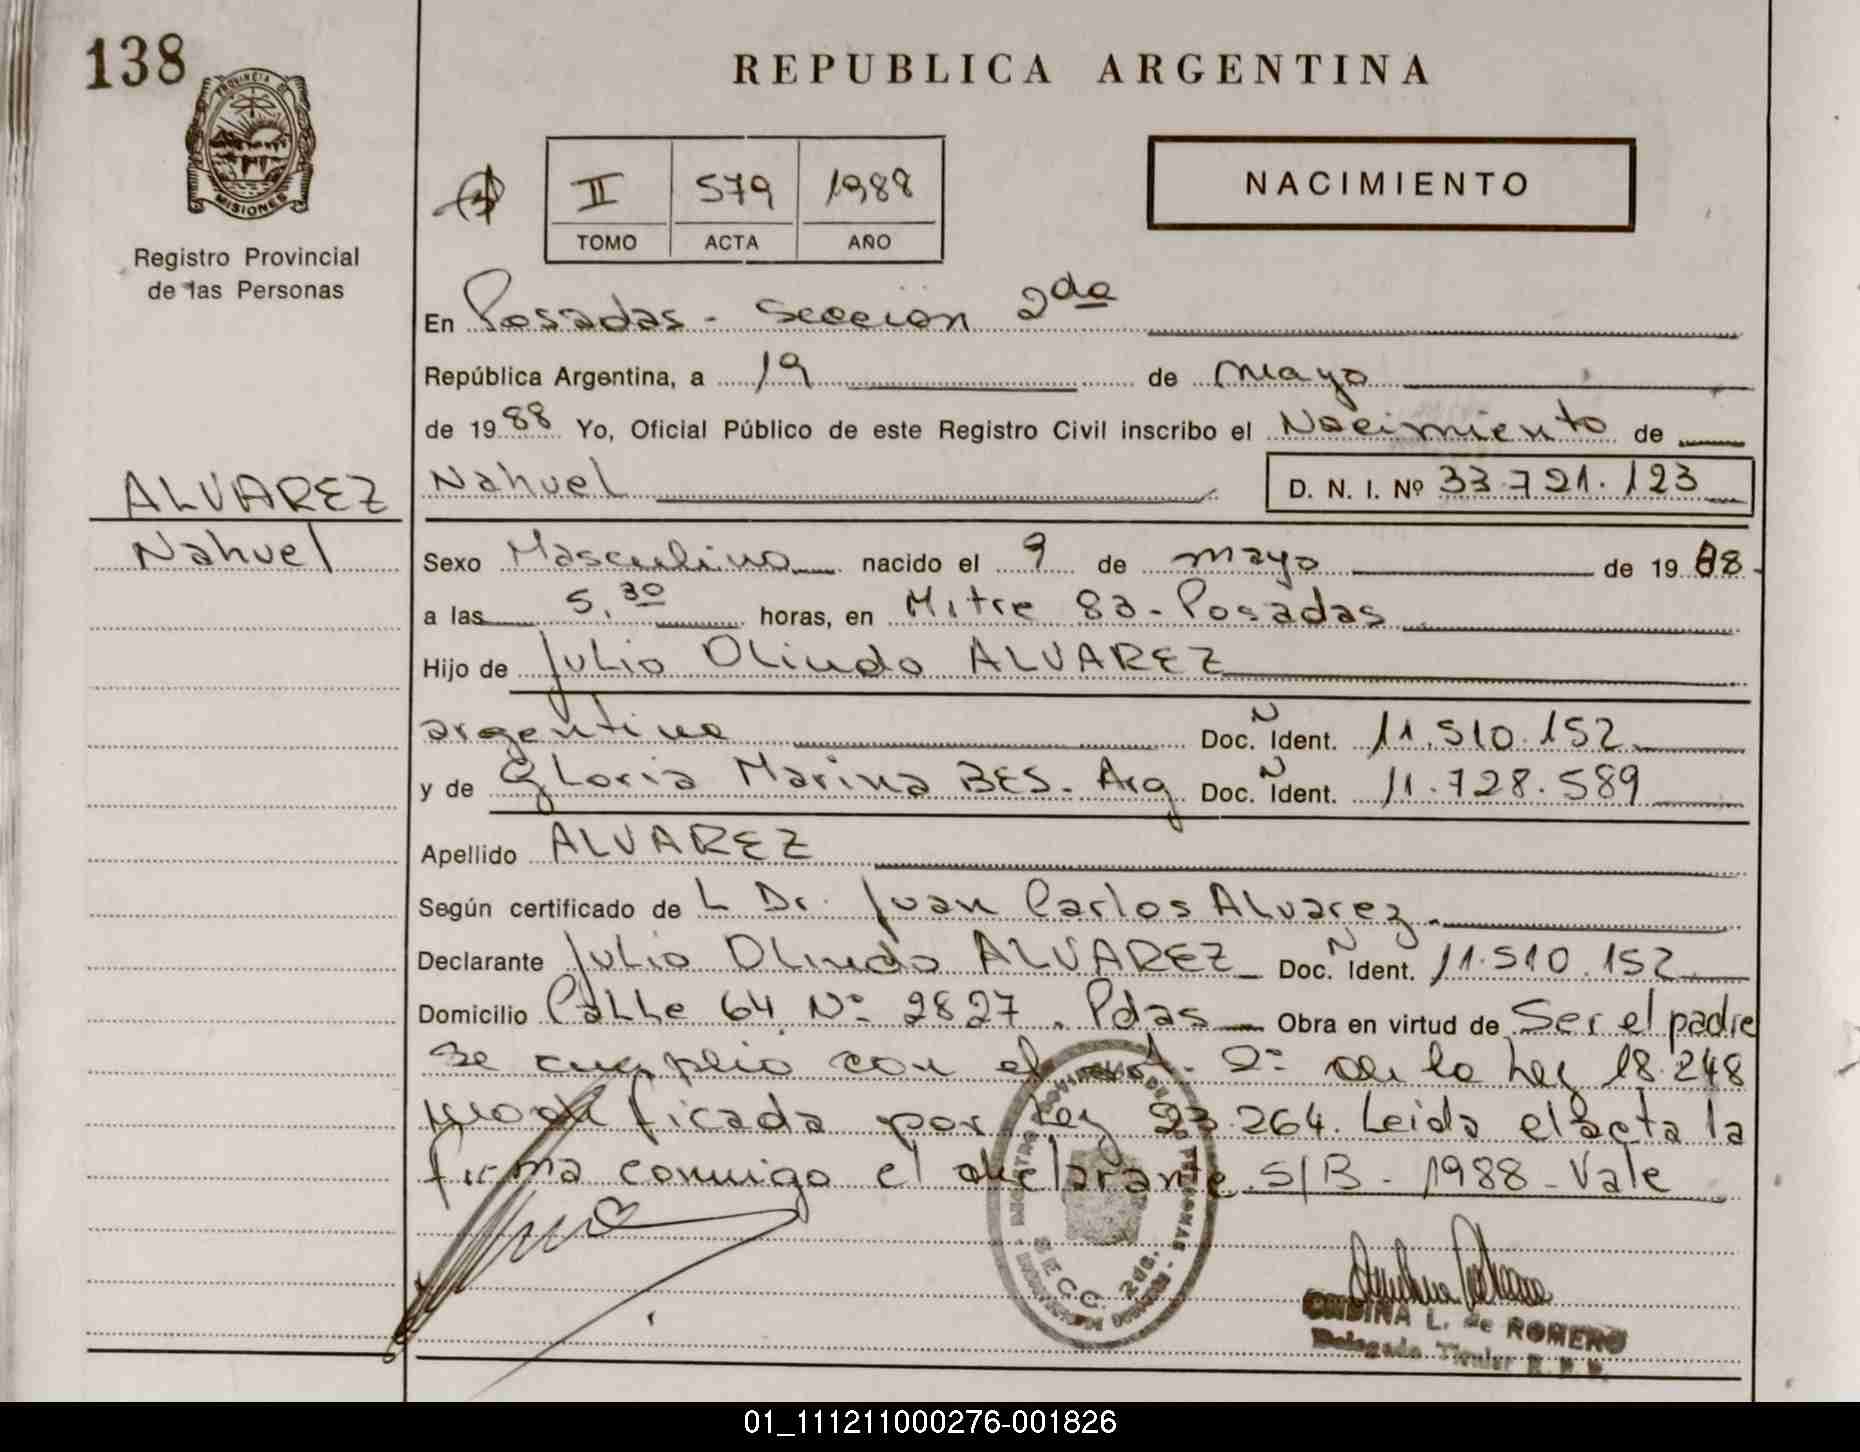 138
REPUBLICA ARGENTINA
PROVINCIA DE
MISIONES
Registro Provincial
de las Personas
II 579 1988
TOMO ACTA AÑO
NACIMIENTO
En Posadas - Seccion 2da
República Argentina, a 19 de mayo
de 1988 Yo, Oficial Público de este Registro Civil inscribo el Nacimiento de
ALVAREZ
Nahuel
Nahuel D. N. I. Nº 33.721.123
Sexo Masculino nacido el 9 de mayo de 1988.
a las 5,30 horas, en Mitre 82 - Posadas
Hijo de Julio OLindo ALVAREZ
argentino Doc. Ñ Ident. 11.510.152
y de GLoria Marina BES. Arg Doc. Ñ Ident. 11.728.589
Apellido ALVAREZ
Según certificado de L Dr. Juan Carlos ALvarez.
Declarante JuLio OLindo ALVAREZ Doc. Ñ Ident. 11.510.152
Domicilio CaLLe 64 Nº 2827. Pdas Obra en virtud de Ser el padre
se cumplio con el art. 2º de la Ley 18.248
modificada por Ley 23.264. Leida el acta la
firma conmigo el declarante. S/B - 1988 - Vale
SECC. 2da.
L. de ROMERO
Delegada Titular R. P. P.
01_111211000276-001826